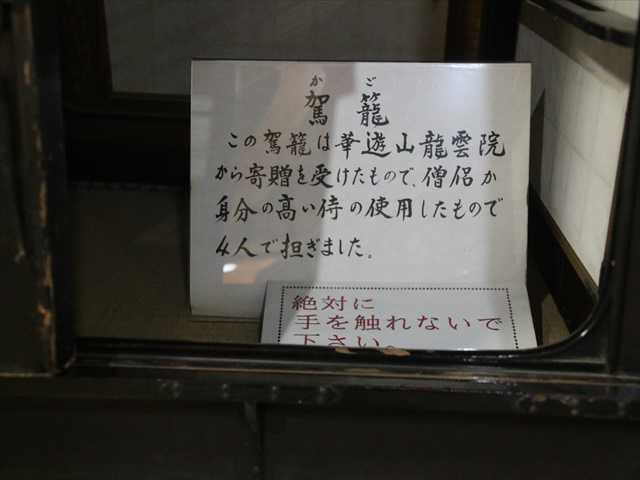 かご
駕籠
この駕籠は華遊山龍雲院
から寄贈を受けたもので、僧侶か
身分の高い侍の使用したもので
4人で担ぎました。
絶対に
手を触れないで
下さい。